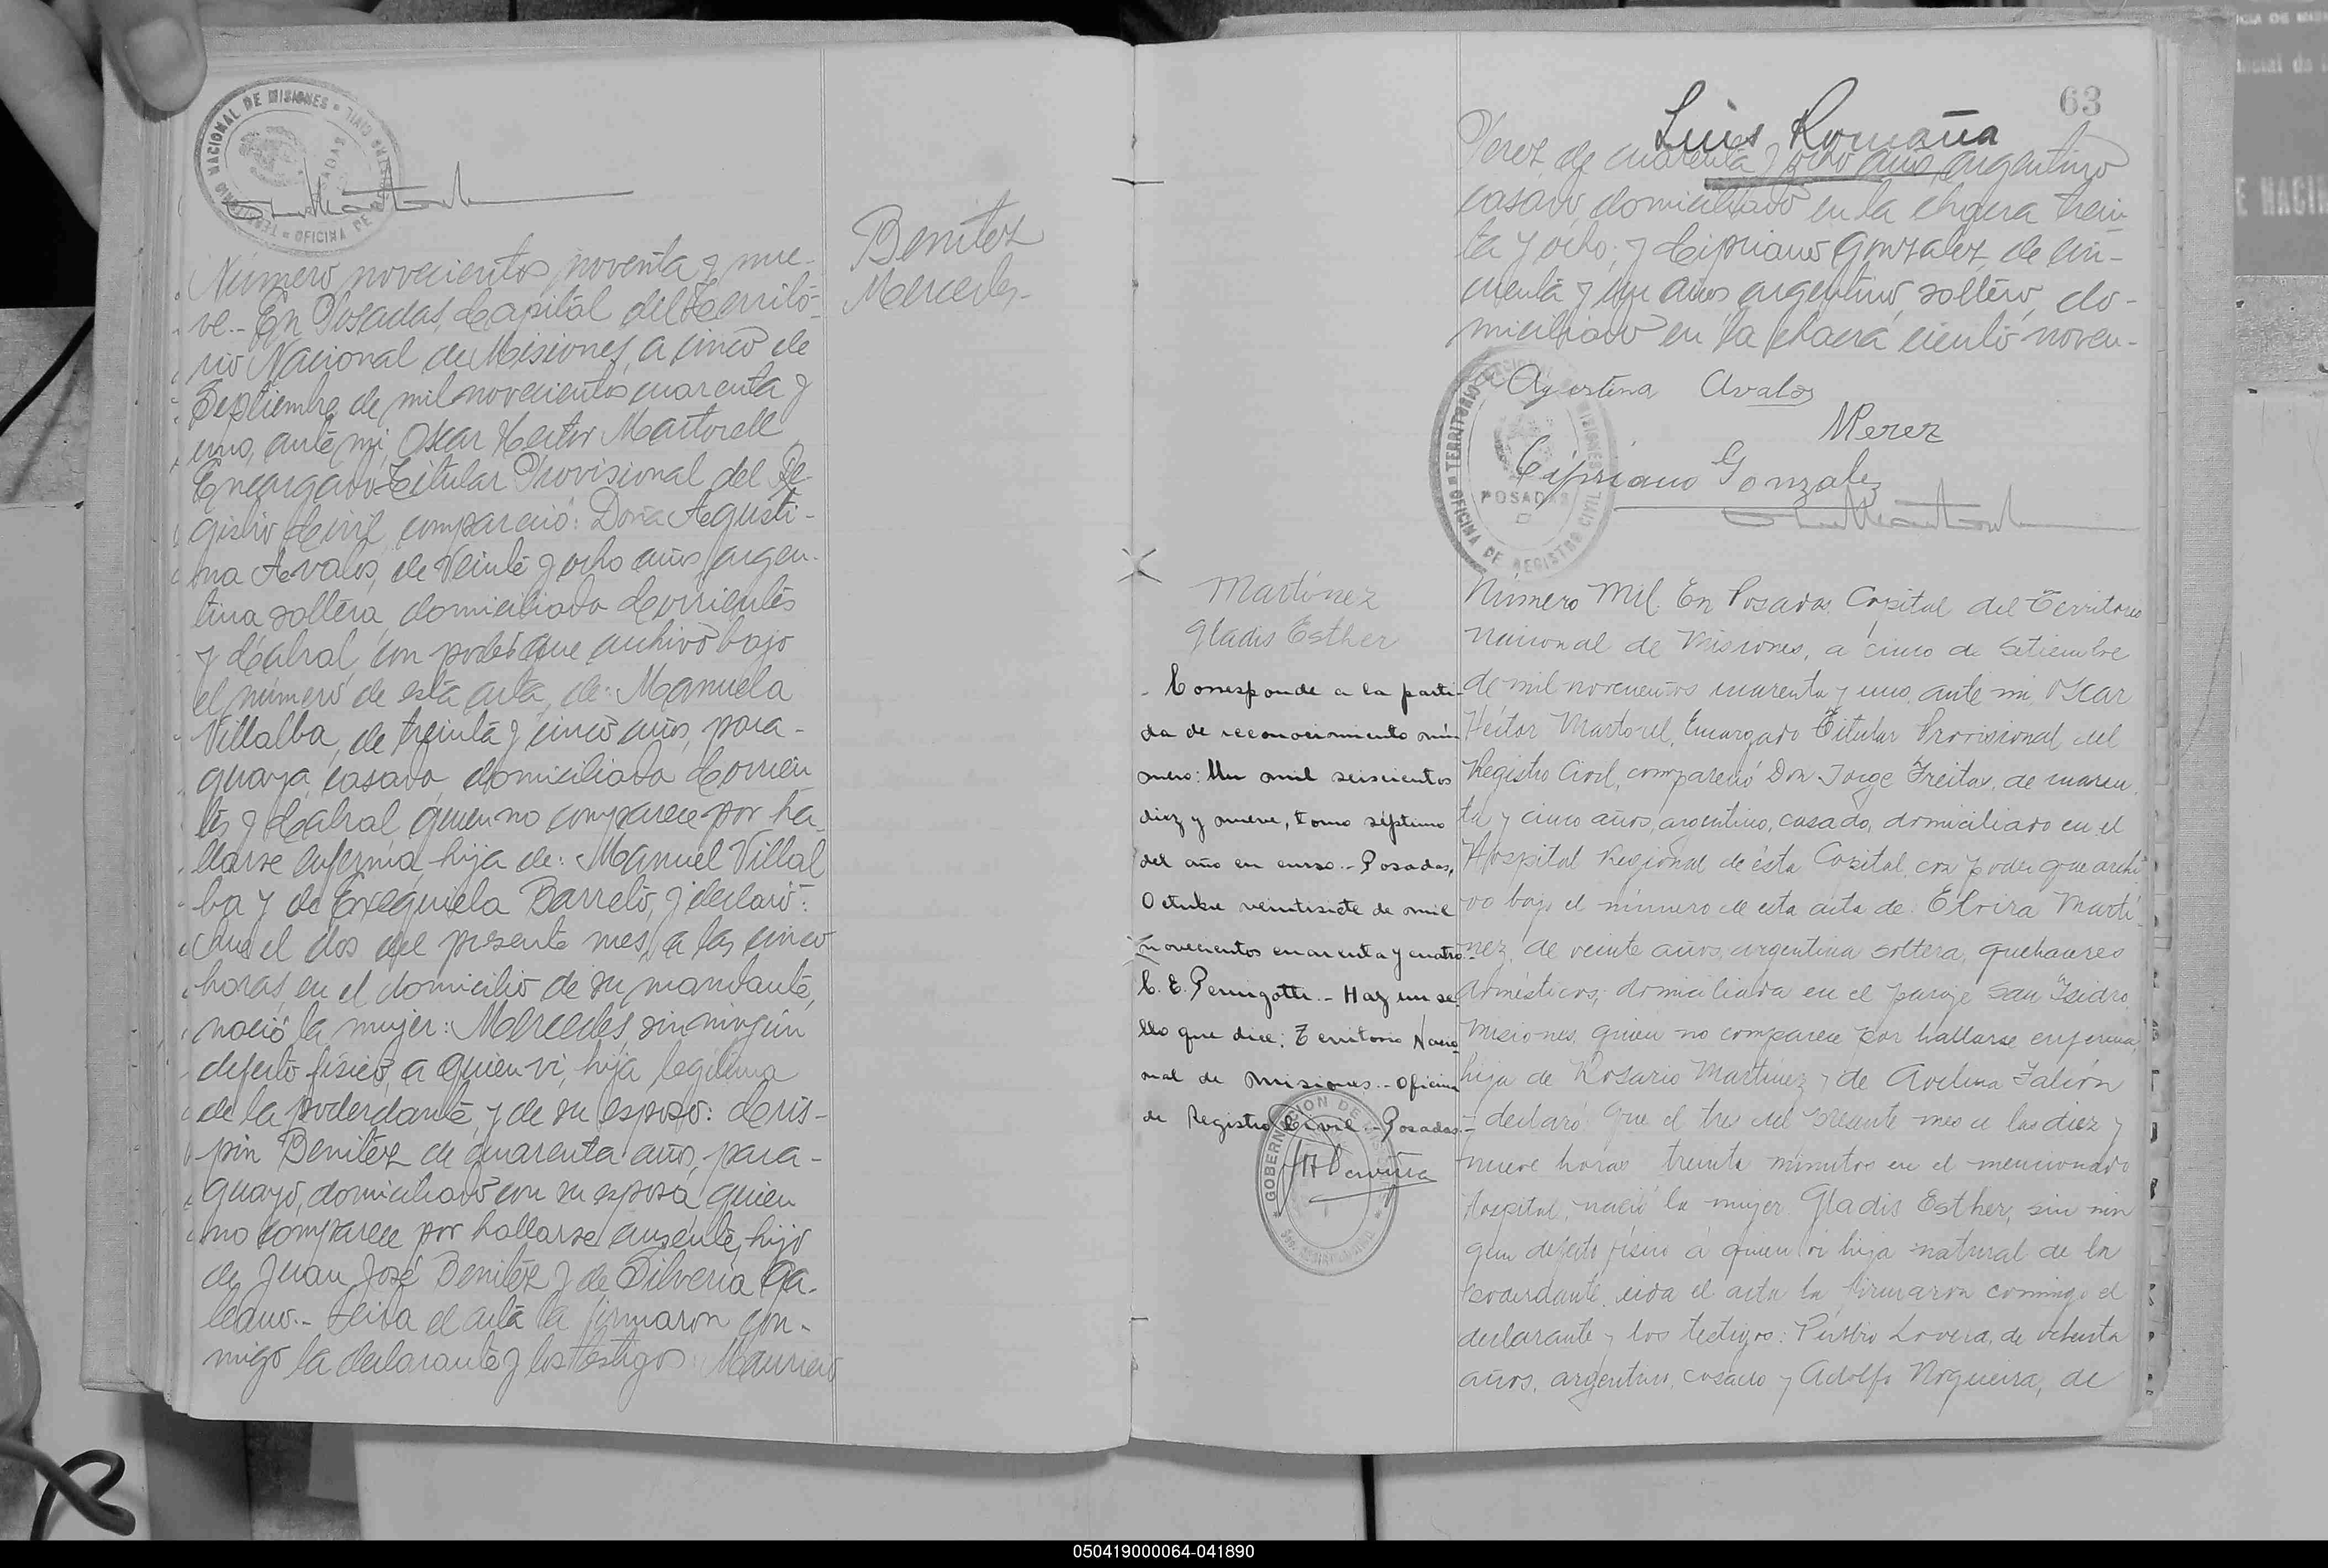 TERRITORIO NACIONAL DE MISIONES
OFICINA DE REGISTRO CIVIL
POSADAS
Benitez
Mercedes.
Número novecientos noventa y nue-
ve.- En Posadas, Capital del Territo-
rio Nacional de Misiones, a cinco de
Septiembre de mil novecientos cuarenta y
uno, ante mi, Oscar Hector Martorell
Encargado Titular Provisional del Re-
gistro Civil, compareció: Doña Agusti-
na Avalos, de veinte y ocho años, argen-
tina soltera domiciliada Corrientes
y Cabral, con poder que archivo bajo
el número de esta acta, de: Manuela
Villalba, de treinta y cinco años, para-
guaya, casada, domiciliada Corrien
tes y Cabral quien no comparece por ha-
llarse enferma, hija de: Manuel Villal
ba y de Exequiela Barreto, y declaró:
Que el dos del presente mes, a las cinco
horas, en el domicilio de su mandante,
nació la mujer: Mercedes, sin ningún
defecto físico, a quien vi, hija legítima
de la poderdante, y de su esposo: Cris-
pin Benitez de cuarenta años, para-
guayo, domiciliado con su esposa quien
no comparece por hallarse ausente, hijo
de Juan José Benitez y de Silveria Ga-
leano.- Leida el acta la firmaron con-
migo la declarante y los testigos: Mauricio
63
Luis Romaña
Perez de cuarenta y ocho años, argentino
casado, domiciliado en la chacra trein-
ta y ocho; y Cipriano Gonzalez, de cin-
cuenta y un años argentino, soltero, do-
miciliado en la chacra ciento noven-
Agustina Avalos
MPerez
Cipriano Gonzalez
TERRITORIO NACIONAL DE MISIONES
OFICINA DE REGISTRO CIVIL
POSADAS
Martínez
Gladis Esther
Corresponde a la parti-
da de reconocimiento nún
mero: Un mil seiscientos
diez y nueve, tomo séptimo
del año en curso.- Posadas,
Octubre veintisiete de mil
novecientos cuarenta y cuatro.-
C. E. Pernigotti.- Hay un se-
llo que dice: Territorio Nacio
nal de Misiones.- Oficina
de Registro Civil.- Posadas.-
GOBERNACION DE MISIONES
Número Mil. En Posadas, Capital del Territorio
nacional de Misiones, a cinco de Setiembre
de mil novecientos cuarenta y uno, ante mi, Oscar
Héctor Martorel, Encargado Titular Provisional del
Registro Civil, compareció Don Jorge Freitas, de cuaren
ta y cinco años, argentino, casado, domiciliado en el
Hospital Regional de ésta Capital, con poder que archi
vo bajo el número de esta acta de Elvira Martí
nez, de veinte años, argentina soltera, quehaceres
domésticos, domiciliada en el paraje San Isidro
Misiones, quien no comparece por hallarse enferma,
hija de Rosario Martínez y de Avelina Falión
declaró: Que el tres del presente mes a las diez y
nueve horas treinta minutos en el mencionado
Hospital, nació la mujer Gladis Esther, sin nin
gun defecto físico a quien vi hija natural de la
poderdante. Leida el acta la firmaron conmigo el
declarante y los testigos: Lovera, de ochenta
años, argentino, casado y Adolfo Nogueira, de
050419000064-041890